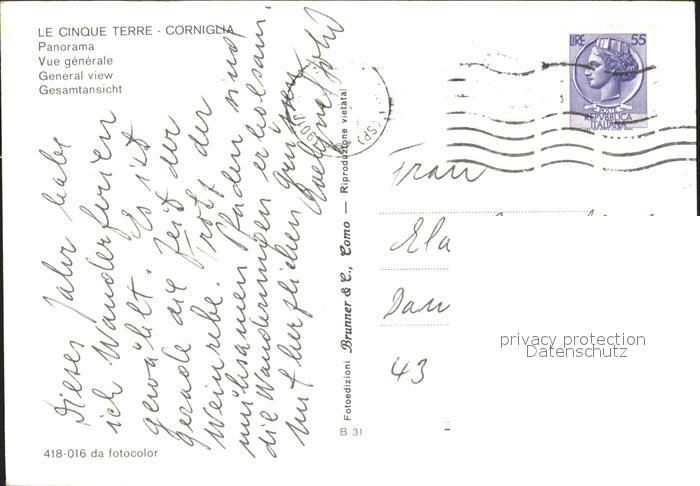 LE CINQUE TERRE - CORNIGLIA
Panorama
Vue générale
General view
Gesamtansicht
Dieses Jahr habe
ich Wanderferien
gewählt. Es ist
gerade die Zeit der
Weinrebe. Trotz der
mühsamen Pfaden sind
die Wanderungen erholsam.
Mit herzlichen Grüssen
418-016 da fotocolor
Fotoedizioni Brunner & C., Como — Riproduzione vietata
B 31
LIRE 55
POSTE
REPVBBLICA
ITALIANA
Frau
Ela
Dan
43
privacy protection
Datenschutz